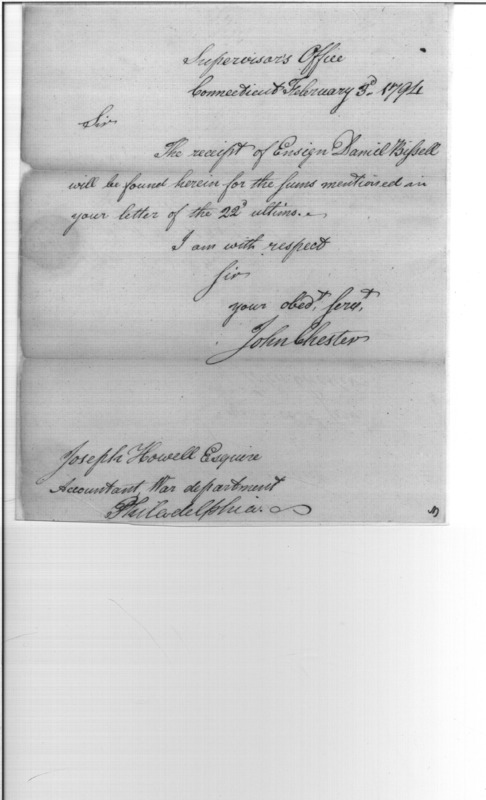 Supervisor's Office
Connecticut February 3d. 1794
Sir
The receipt of Ensign Daniel Bissell
will be found herein for the sums mentioned in
your letter of the 22d ultimo.
I am with respect
Sir
your obedt. servt.
John Chester
Joseph Howell Esquire
Accountant War department
Philadelphia.